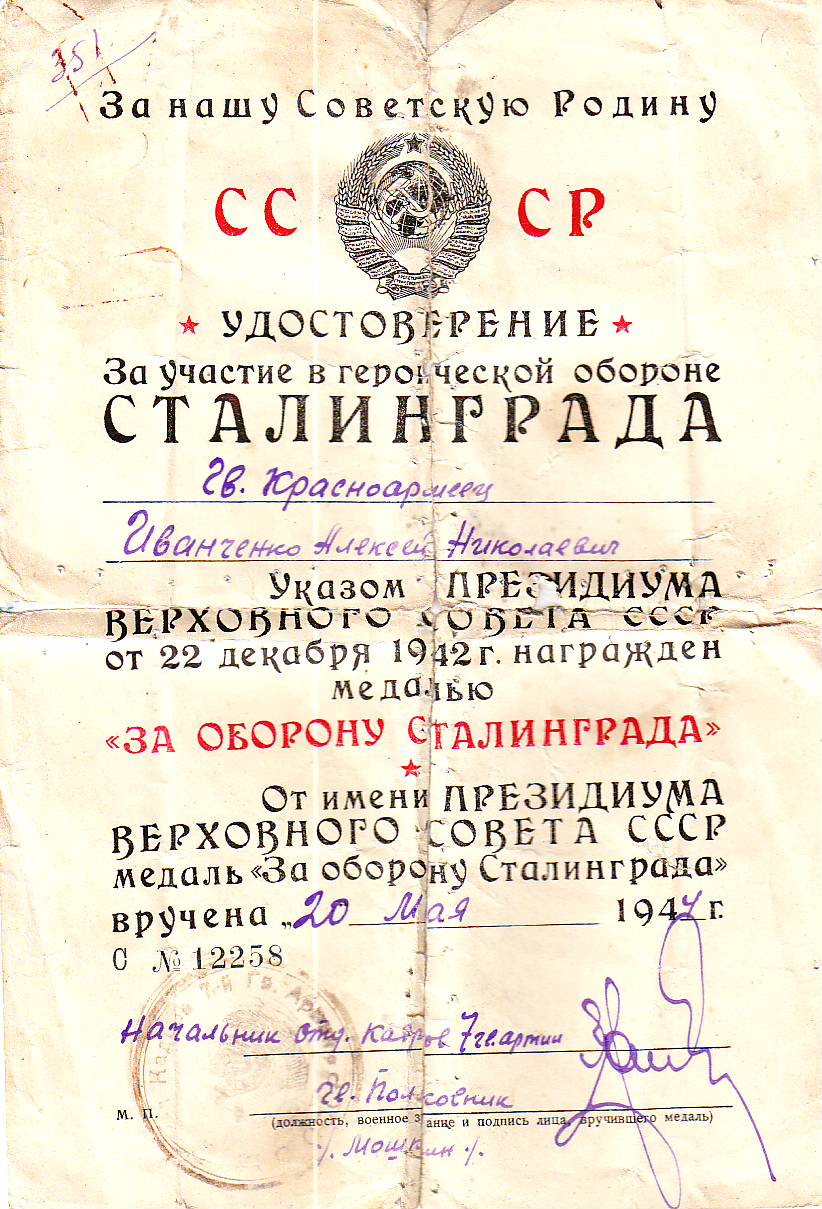 351
За нашу Советскую Родину
СССР
УДОСТОВЕРЕНИЕ
За участие в героической обороне
СТАЛИНГРАДА
Гв. Красноармеец
Иванченко Алексей Николаевич
Указом ПРЕЗИДИУМА
ВЕРХОВНОГО СОВЕТА СССР
от 22 декабря 1942 г. награжден
медалью
«ЗА ОБОРОНУ СТАЛИНГРАДА»
От имени ПРЕЗИДИУМА
ВЕРХОВНОГО СОВЕТА СССР
медаль «За оборону Сталинграда»
вручена „20 Мая 1944 г.
С № 12258
Начальник отд. кадров 7 гв. армии
Гв. Полковник
М. П.
(должность, военное звание и подпись лица, вручившего медаль)
/. Мошкин ./.